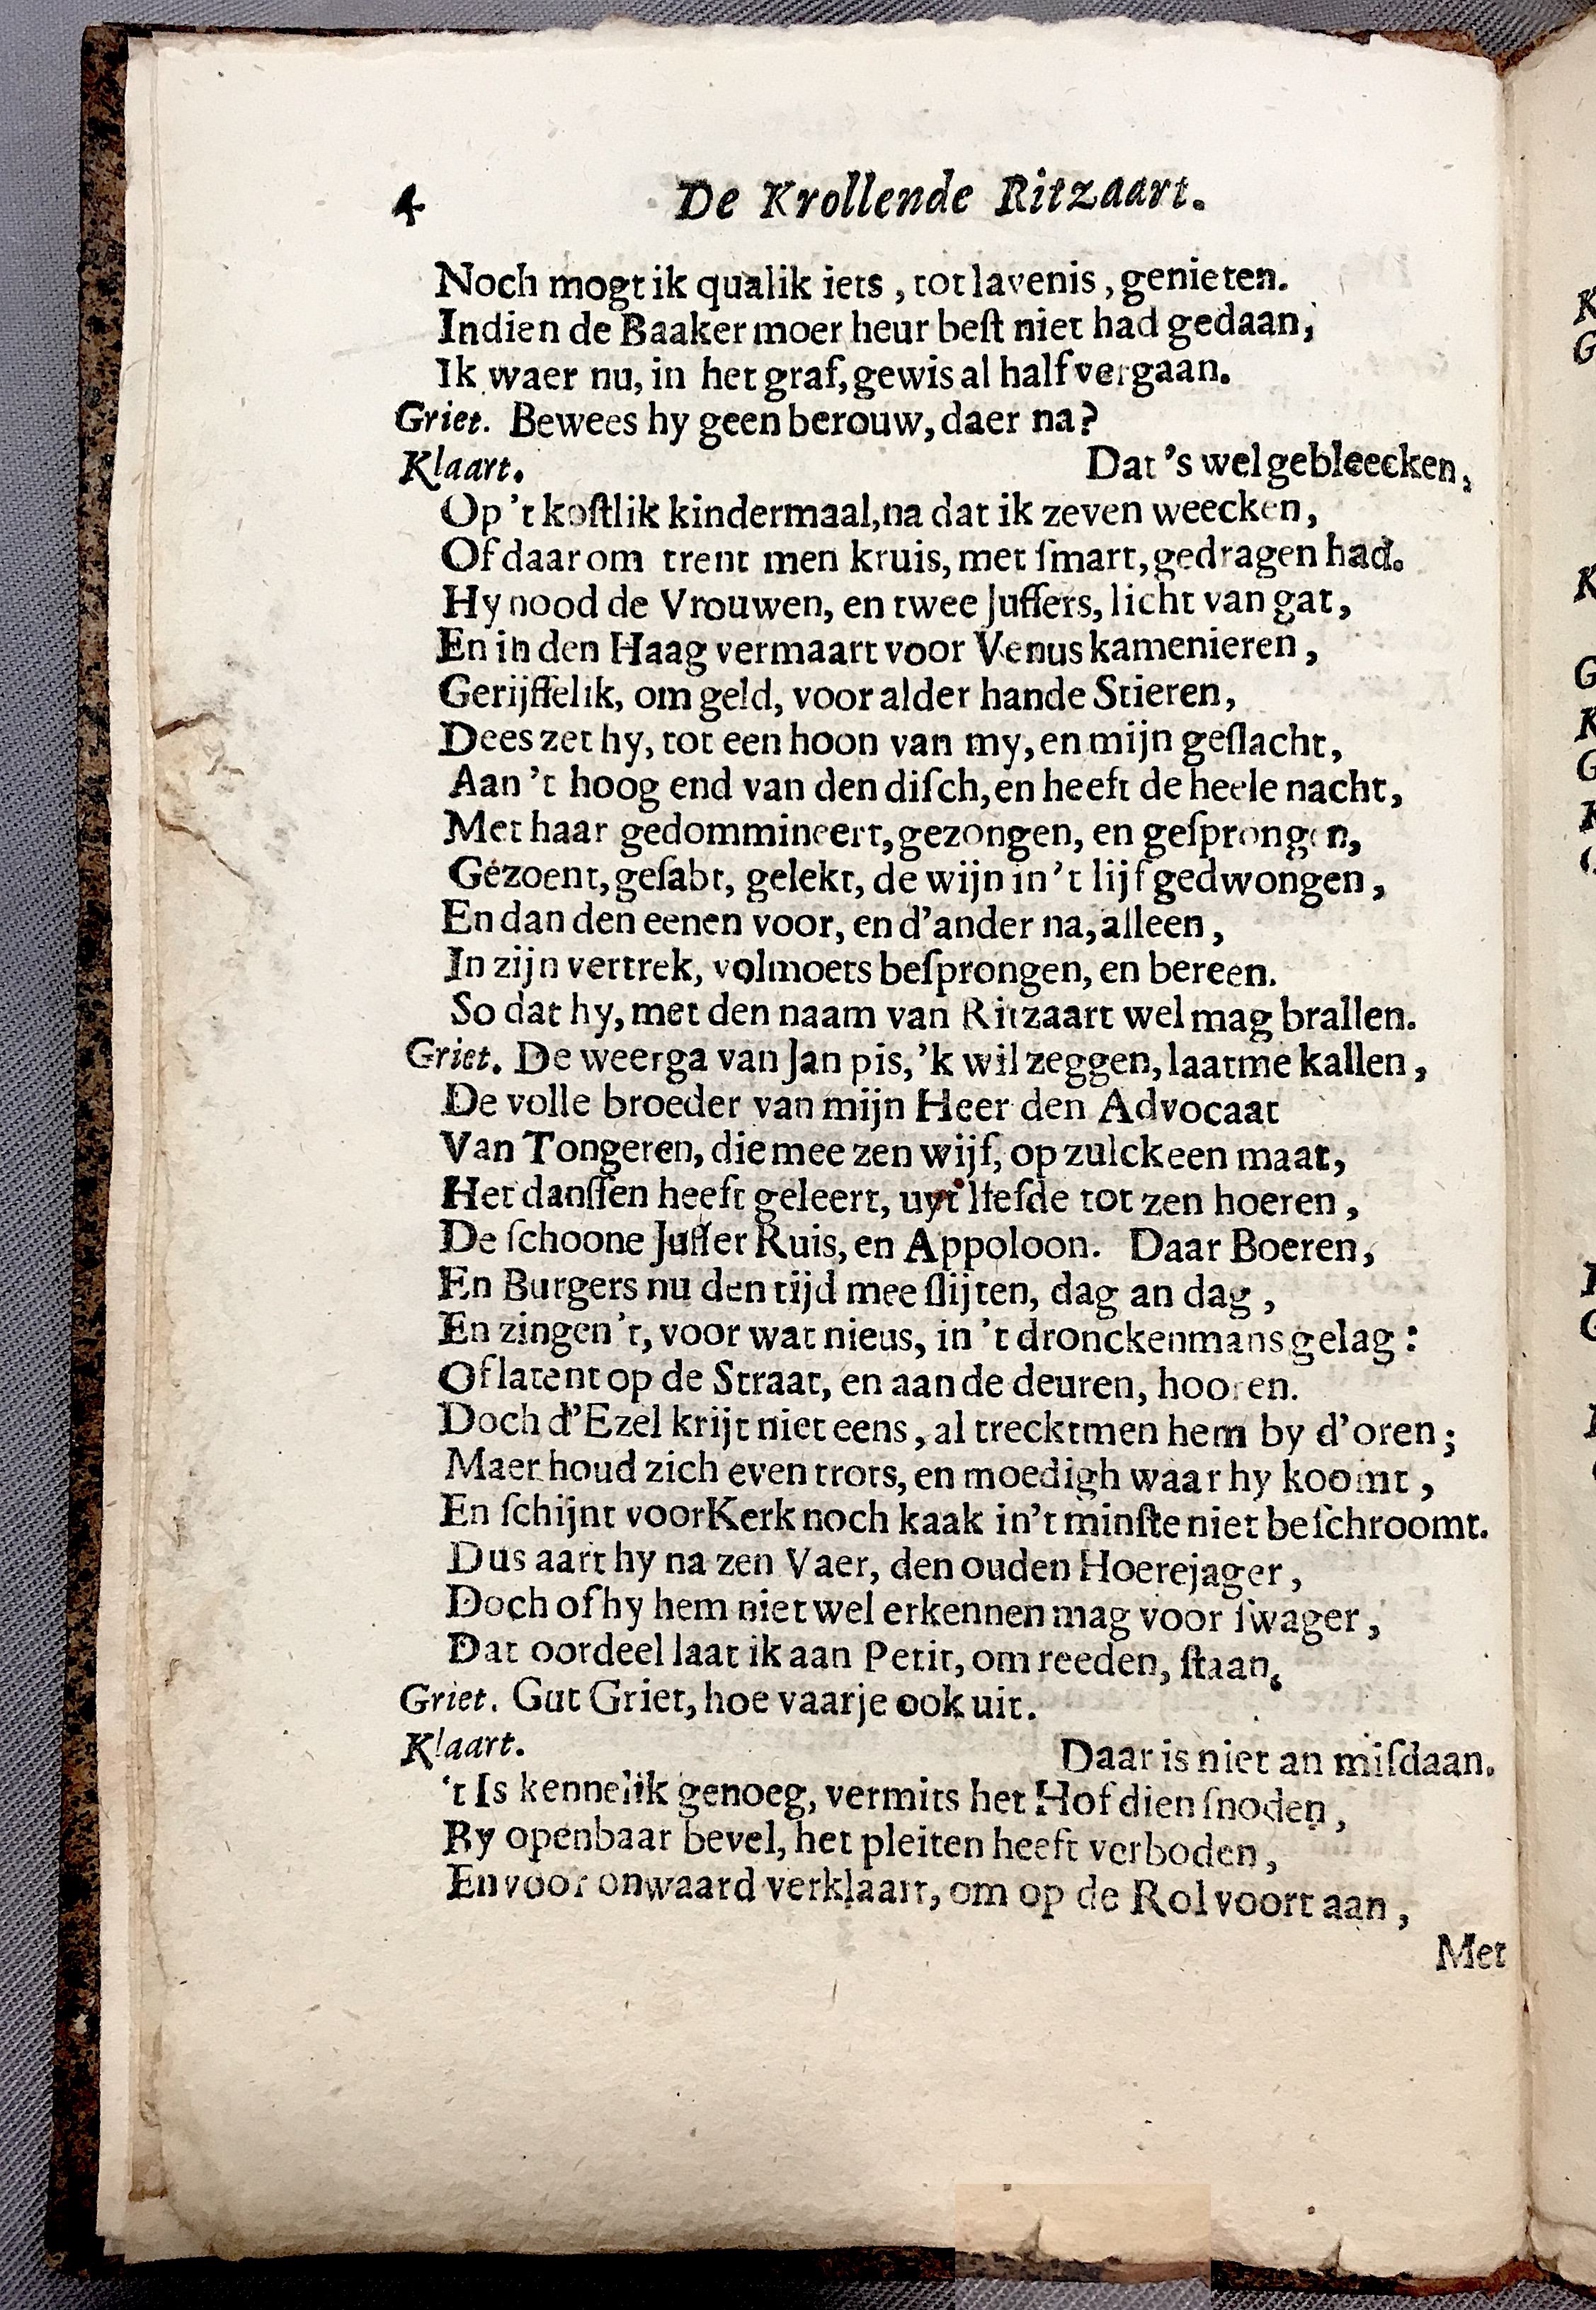 4 De Krollende Ritzaart.
Noch mogt ik qualik iets, tot lavenis, genieten.
Indien de Baaker moer heur beſt niet had gedaan,
Ik waer nu, in het graf, gewis al half vergaan.
Griet. Bewees hy geen berouw, daer na?
Klaart. Dat 's wel gebleecken,
Op 't koſtlik kindermaal, na dat ik zeven weecken,
Of daar om trent men kruis, met ſmart, gedragen had.
Hy nood de Vrouwen, en twee Juffers, licht van gat,
En in den Haag vermaart voor Venus kamenieren,
Gerijffelik, om geld, voor alder hande Stieren,
Dees zet hy, tot een hoon van my, en mijn geſlacht,
Aan 't hoog end van den diſch, en heeft de heele nacht,
Met haar gedommineert, gezongen, en geſprongen,
Gezoent, geſabt, gelekt, de wijn in 't lijf gedwongen,
En dan den eenen voor, en d'ander na, alleen,
In zijn vertrek, volmoets beſprongen, en bereen.
So dat hy, met den naam van Ritzaart wel mag brallen.
Griet. De weerga van Jan pis, 'k wil zeggen, laatme kallen,
De volle broeder van mijn Heer den Advocaat
Van Tongeren, die mee zen wijf, op zulck een maat,
Het danſſen heeft geleert, uyt lieſde tot zen hoeren,
De ſchoone Juffer Ruis, en Appoloon. Daar Boeren,
En Burgers nu den tijd mee ſlijten, dag an dag,
En zingen 't, voor wat nieus, in 't dronckenmans gelag:
Of latent op de Straat, en aan de deuren, hooren.
Doch d'Ezel krijt niet eens, al trecktmen hem by d'oren;
Maer houd zich even trots, en moedigh waar hy koomt,
En ſchijnt voor Kerk noch kaak in't minſte niet beſchroomt.
Dus aart hy na zen Vaer, den ouden Hoerejager,
Doch of hy hem niet wel erkennen mag voor ſwager,
Dat oordeel laat ik aan Petit, om reeden, ſtaan,
Griet. Gut Griet, hoe vaarje ook uit.
Klaart. Daar is niet an miſdaan.
't Is kennelik genoeg, vermits het Hof dien ſnoden,
By openbaar bevel, het pleiten heeft verboden,
En voor onwaard verklaart, om op de Rol voort aan,
Met